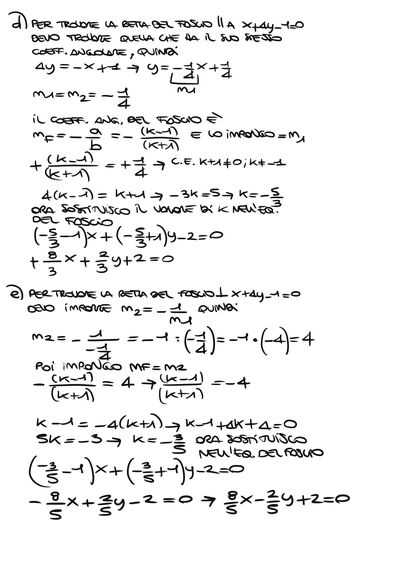 d) PER TROVARE LA RETTA DEL FASCIO || A x+4y-1=0
DEVO TROVARE QUELLA CHE HA IL SUO STESSO
COEFF. ANGOLARE, QUINDI
4y = -x+1 → y = -1/4 x + 1/4
m1
m1 = m2 = -1/4
IL COEFF. ANG. DEL FASCIO È
mF = -a/b = -(k-1)/(k+1) E LO IMPONGO = m1
+(k-1)/(k+1) = +1/4 → C.E. k+1≠0; k≠-1
4(k-1) = k+1 → -3k=5 → k=-5/3
ORA SOSTITUISCO IL VALORE DI K NELL'EQ.
DEL FASCIO
(-5/3-1)x + (-5/3+1)y-2=0
+8/3 x + 2/3 y + 2 = 0
e) PER TROVARE LA RETTA DEL FASCIO ⊥ x+4y-1=0
DEVO IMPORRE m2 = -1/m1 QUINDI
m2 = -1/(-1/4) = -1 : (-1/4) = -1 • (-4) = 4
POI IMPONGO MF = M2
-(k-1)/(k+1) = 4 → (k-1)/(k+1) = -4
k-1 = -4(k+1) → k-1+4k+4=0
5k=-3 → k=-3/5 ORA SOSTITUISCO
NELL'EQ. DEL FASCIO
(-3/5-1)x + (-3/5+1)y-2=0
-8/5 x + 2/5 y - 2 = 0 → 8/5 x - 2/5 y + 2 = 0